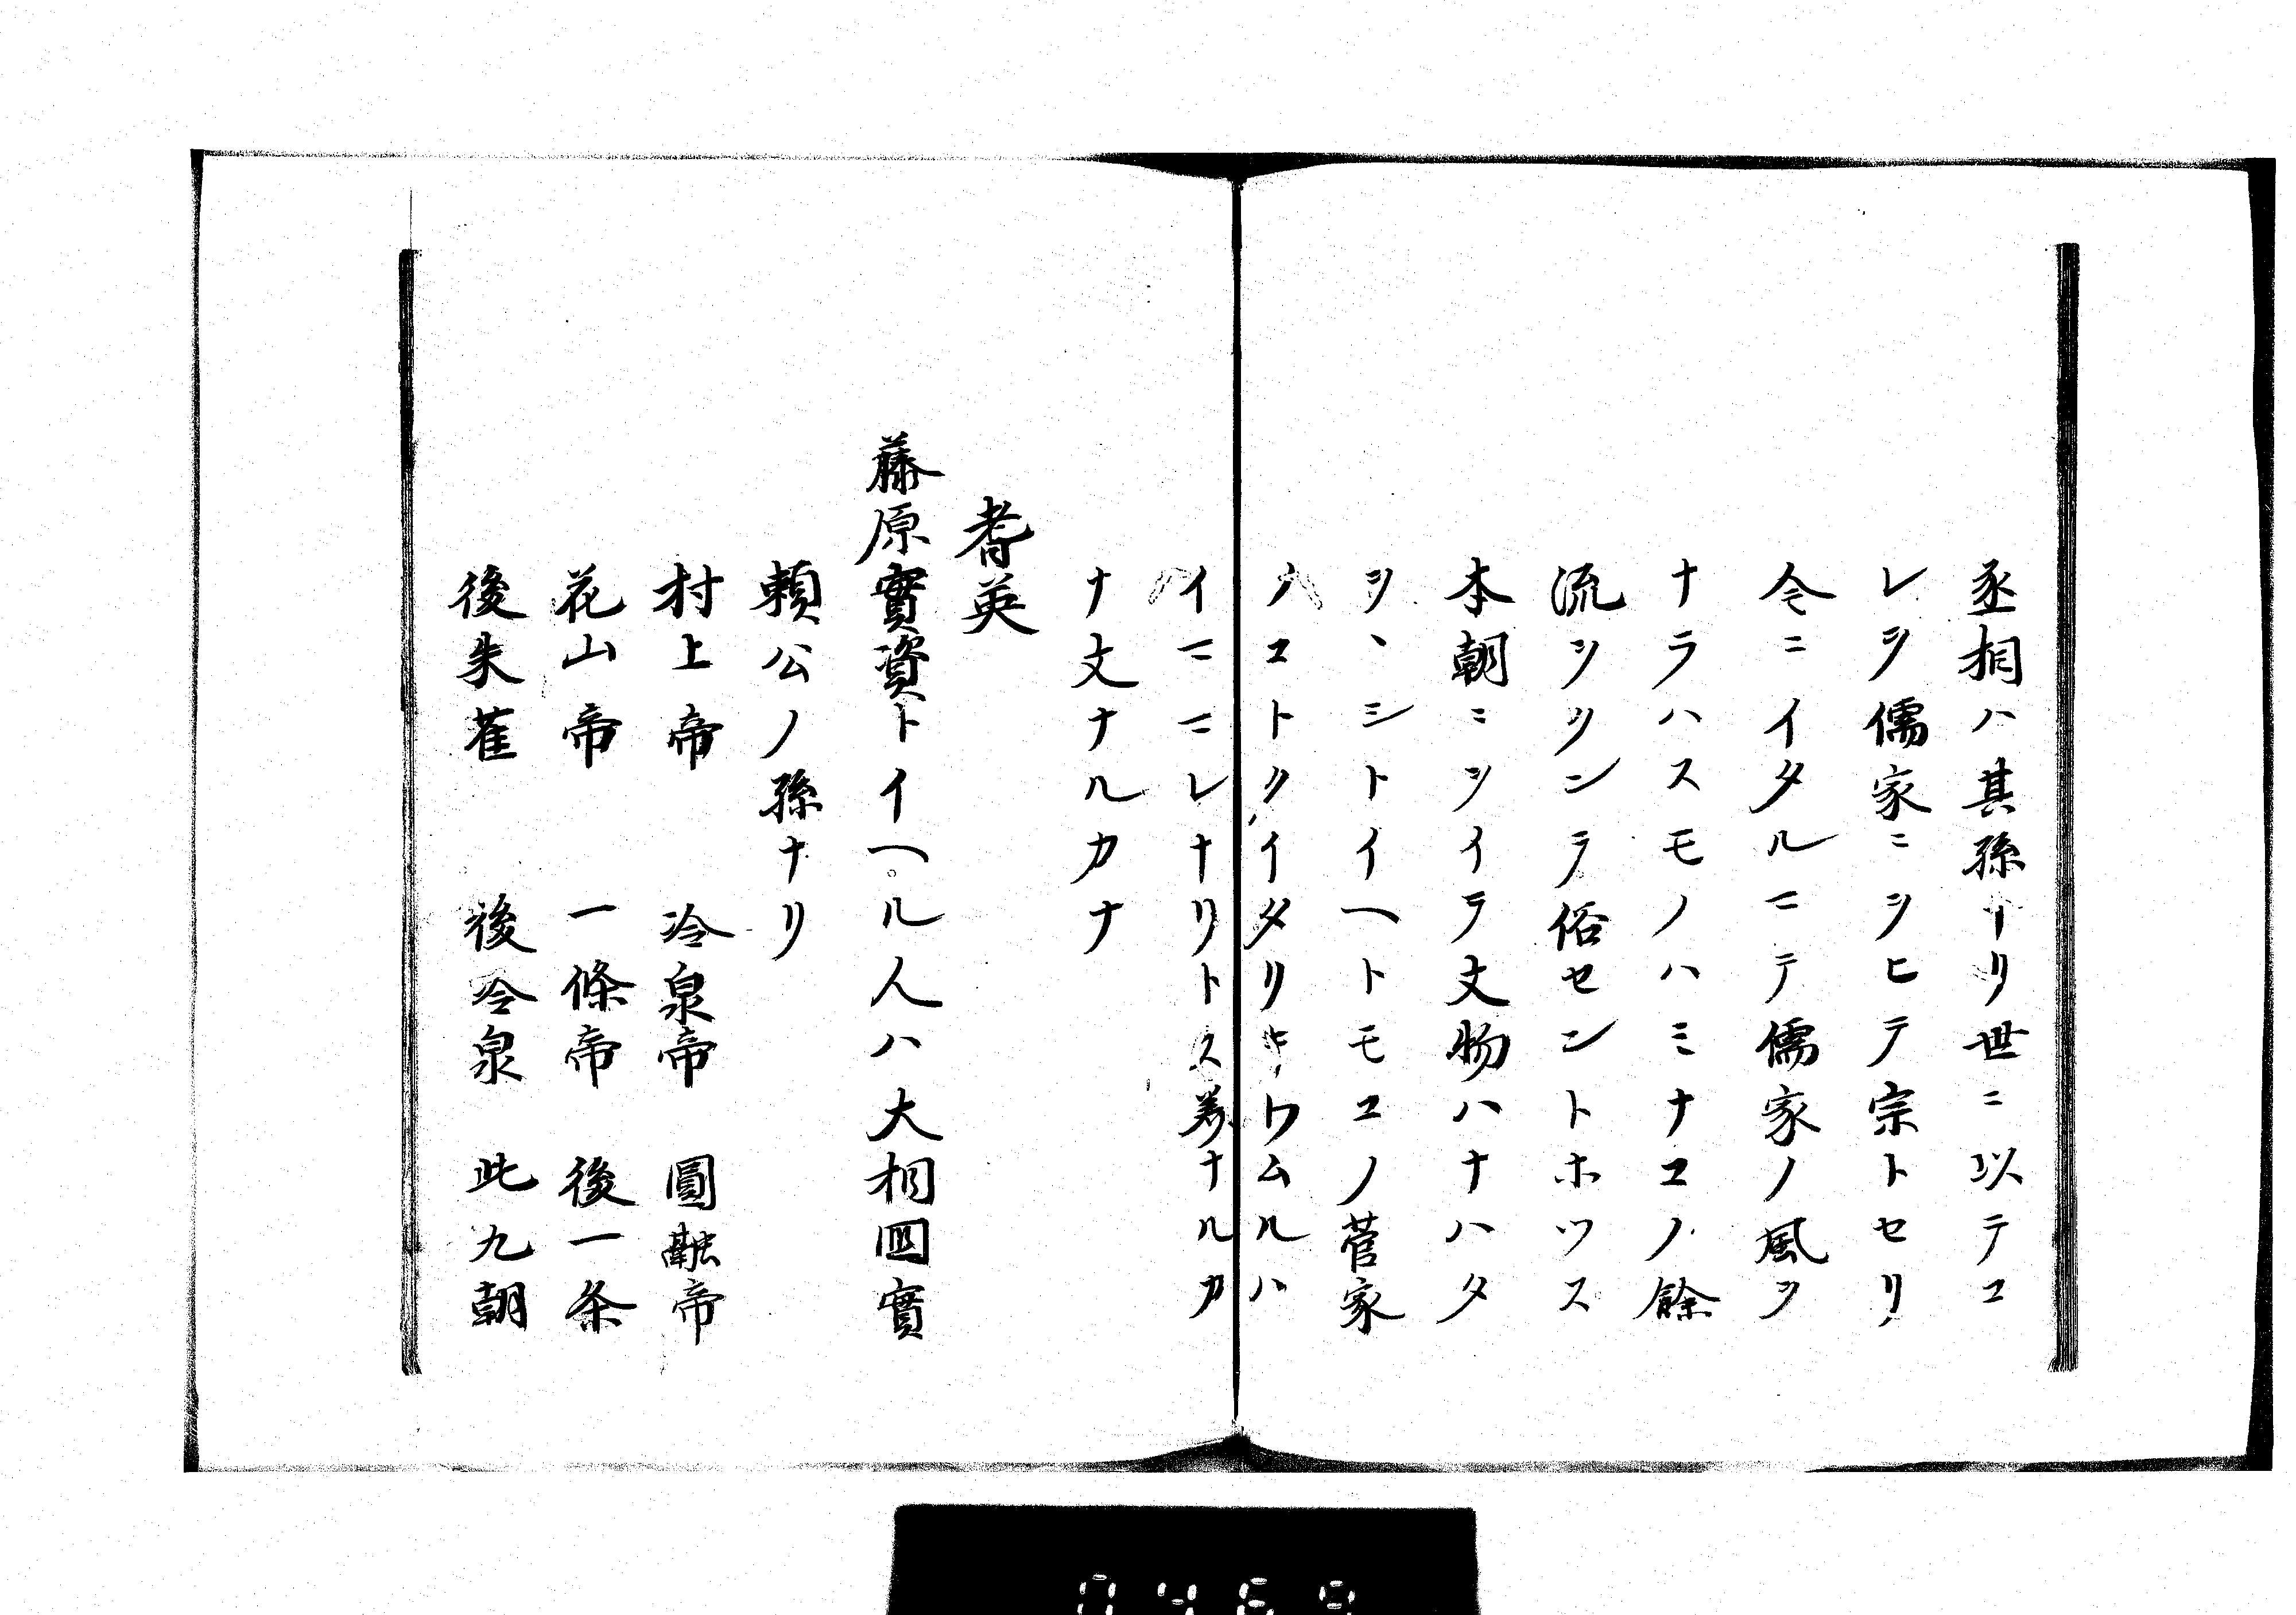 丞相ハ其孫ナリ世ニ以テコ
レヲ儒家ニシヒテ宗トセリ
今ニイタルマテ儒家ノ風ヲ
ナラハスモノハミナコノ餘
流シリンテ俗セントホツス
本朝ニツイテ文物ハナハタ
ヲヽシトイヘトモコノ菅家
ハコトクイタリキワムルハ
イマニレナリトス美ナルカ
ナ文ナルカナ
耆英
藤原實資トイヘル人ハ大相国實
頼公ノ孫ナリ
村上帝 冷泉帝 圓融帝
花山帝 一條帝 後一条
後朱雀 後冷泉 此九朝